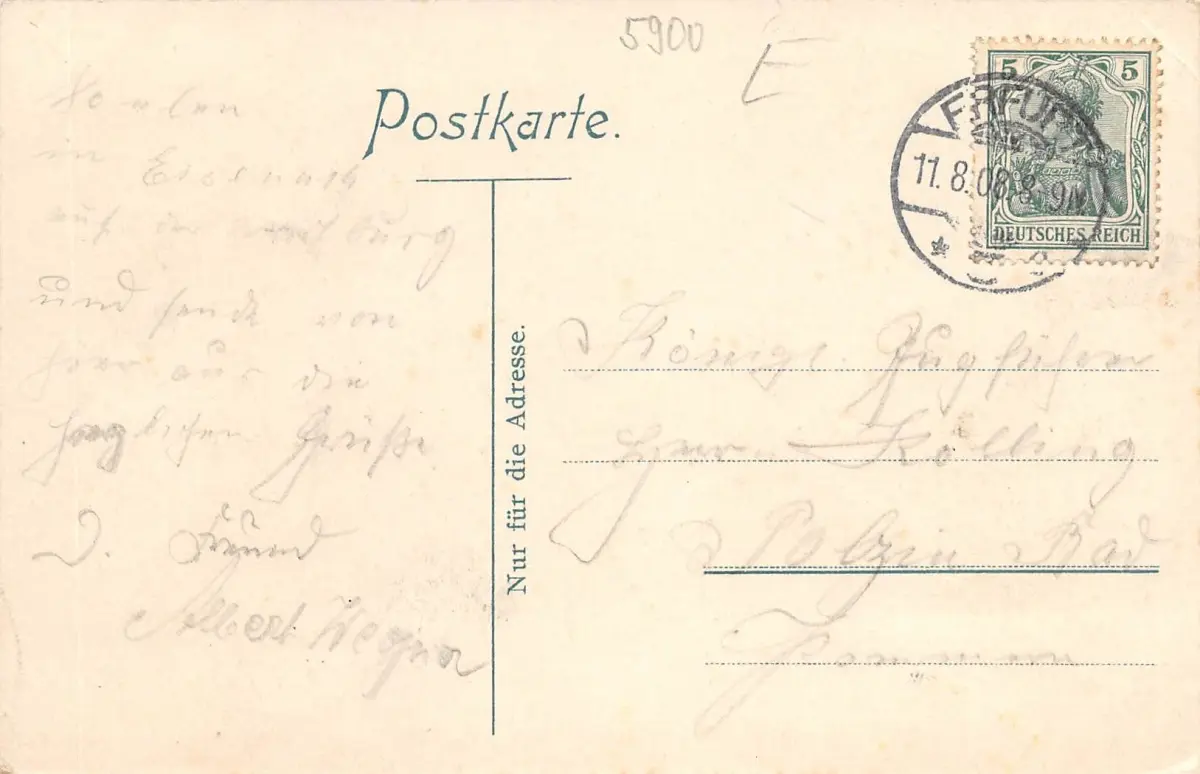 5900
E
Postkarte.
5 5
ERFURT
11.8.08.8-9N.
DEUTSCHES REICH
in Eisenach
auf der
und sende von
hier aus die
herzlichen Grüße
D. Freund
Albert Wegner
Nur für die Adresse.
Königl. Zugführer
Herrn Kölling
Polzin Bad
Pommern